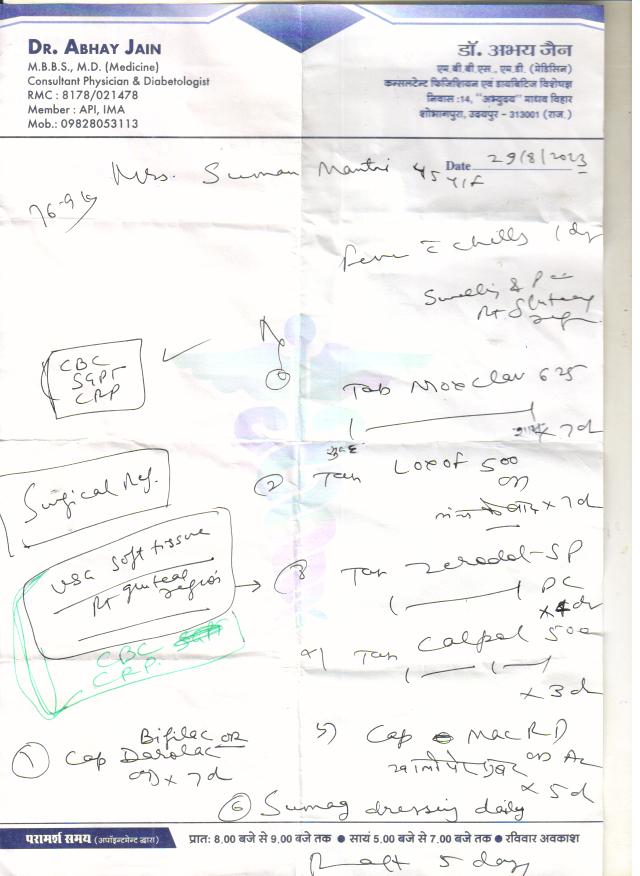 DR. ABHAY JAIN
M.B.B.S., M.D. (Medicine)
Consultant Physician & Diabetologist
RMC : 8178/021478
Member : API, IMA
Mob.: 09828053113
डॉ. अभय जैन
एम.बी.बी.एस., एम.डी. (मेडिसिन)
कन्सलटेन्ट फिजिशियन एवं डायबिटिज विशेषज्ञ
निवास :14, "अभ्युदय" माधव विहार
शोभागपुरा, उदयपुर - 313001 (राज.)
Date 29/8/2023
Mrs. Suman Mantri 45 Y/F
76.9 kg
Fever c̄ chills 1 dy
Swelling & P
Rt Gluteay
CBC
SGPT
CRP
Rx
① Tab Moxclav 625
सुबह शाम x 7d
② Tab Loxof 500
OD
x 7d
Surgical Ref.
USG soft tissue
Rt gluteal region
CBC
CRP
3) Tab Zerodol-SP
PC
x 4d
4) Tab Calpol 500
x 3d
5) Cap Mac RD
खाली पेट सुबह OD AC
x 5d
⑥ Sumag dressing daily
⑦ Cap Bifilac OR
Darolac
OD x 7d
परामर्श समय (अपॉइन्टमेन्ट द्वारा)
प्रातः 8.00 बजे से 9.00 बजे तक ● सायं 5.00 बजे से 7.00 बजे तक ● रविवार अवकाश
R aft 5 day